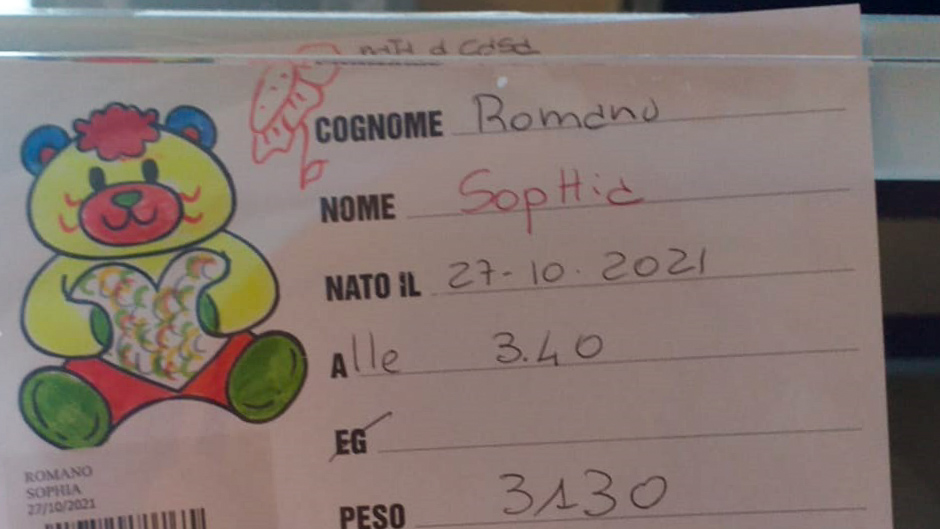 nata a casa
COGNOME Romano
NOME SopHia
NATO iL 27-10.2021
Alle 3.40
EG
PESO 3130
ROMANO
SOPHIA
27/10/2021